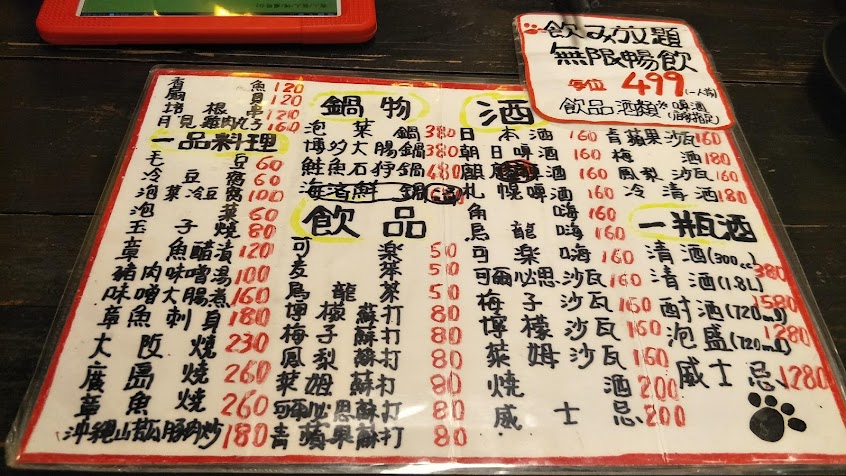 飲み放題
無限暢飲
每位 499 (一人份)
飲品 酒類
香魚 120
扇貝 120
根
月見雞肉丸子 160
一品料理
毛豆 60
冷豆腐 60
泡菜冷豆腐 100
泡菜 60
玉子燒 80
章魚醋漬 120
豬肉味噌湯 100
味噌大腸煮 160
章魚刺身 180
大阪燒 230
廣島燒 260
章魚燒 260
沖繩山苦瓜豚肉炒 180
鍋物
泡菜鍋 380
博多大腸鍋 380
鮭魚石狩鍋 480
海濱鮮鍋
飲品
可樂 50
麦茶 50
烏龍茶 50
檸檬蘇打 80
梅子蘇打 80
鳳梨蘇打 80
萊姆蘇打 80
可爾必思蘇打 80
青蘋果蘇打 80
酒
日本酒 160
朝日啤酒 160
麒麟啤酒 160
札幌啤酒 160
角嗨 160
烏龍嗨 160
可樂嗨 160
可爾必思沙瓦 160
梅子沙瓦 160
檸檬沙瓦 160
萊姆沙瓦 160
燒酒 200
威士忌 200
青蘋果沙瓦 160
梅酒 180
鳳梨沙瓦 160
冷清酒 180
一瓶酒
清酒(300cc) 380
清酒(1.8L) 1580
酎酒(720ml) 1280
泡盛(720ml)
威士忌 1280